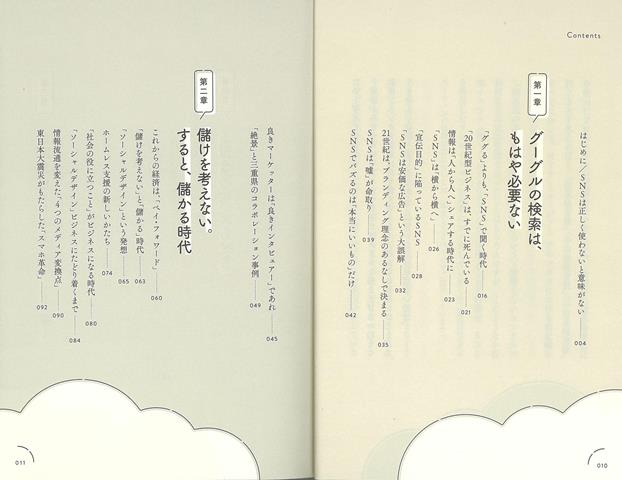 Contents
はじめに／SNSは正しく使わないと意味がない 004
第一章
グーグルの検索は、
もはや必要ない
「ググる」よりも、「SNS」で聞く時代 016
「20世紀型ビジネス」は、すでに死んでいる 021
情報は、「人から人へ」シェアする時代に 023
「SNS」は、「横から横へ」 026
「宣伝目的」に陥っているSNS 028
「SNSは安価な広告」という大誤解 032
21世紀は、ブランディング理念のあるなしで決まる 035
SNSは「嘘」が命取り 039
SNSでバズるのは「本当にいいもの」だけ 042
010
良きマーケッターは、「良きインタビュアー」であれ 045
「絶景」と三重県のコラボレーション事例 049
第二章
儲けを考えない。
すると、儲かる時代
これからの経済は、「ペイ・フォワード」 060
「儲けを考えない」と、「儲かる」時代 063
「ソーシャルデザイン」という発想 065
ホームレス支援の新しいかたち 074
「社会の役に立つこと」がビジネスになる時代 080
「ソーシャルデザイン」ビジネスにたどり着くまで 084
情報流通を変えた、「4つのメディア変換点」 090
東日本大震災がもたらした、「スマホ革命」 092
011